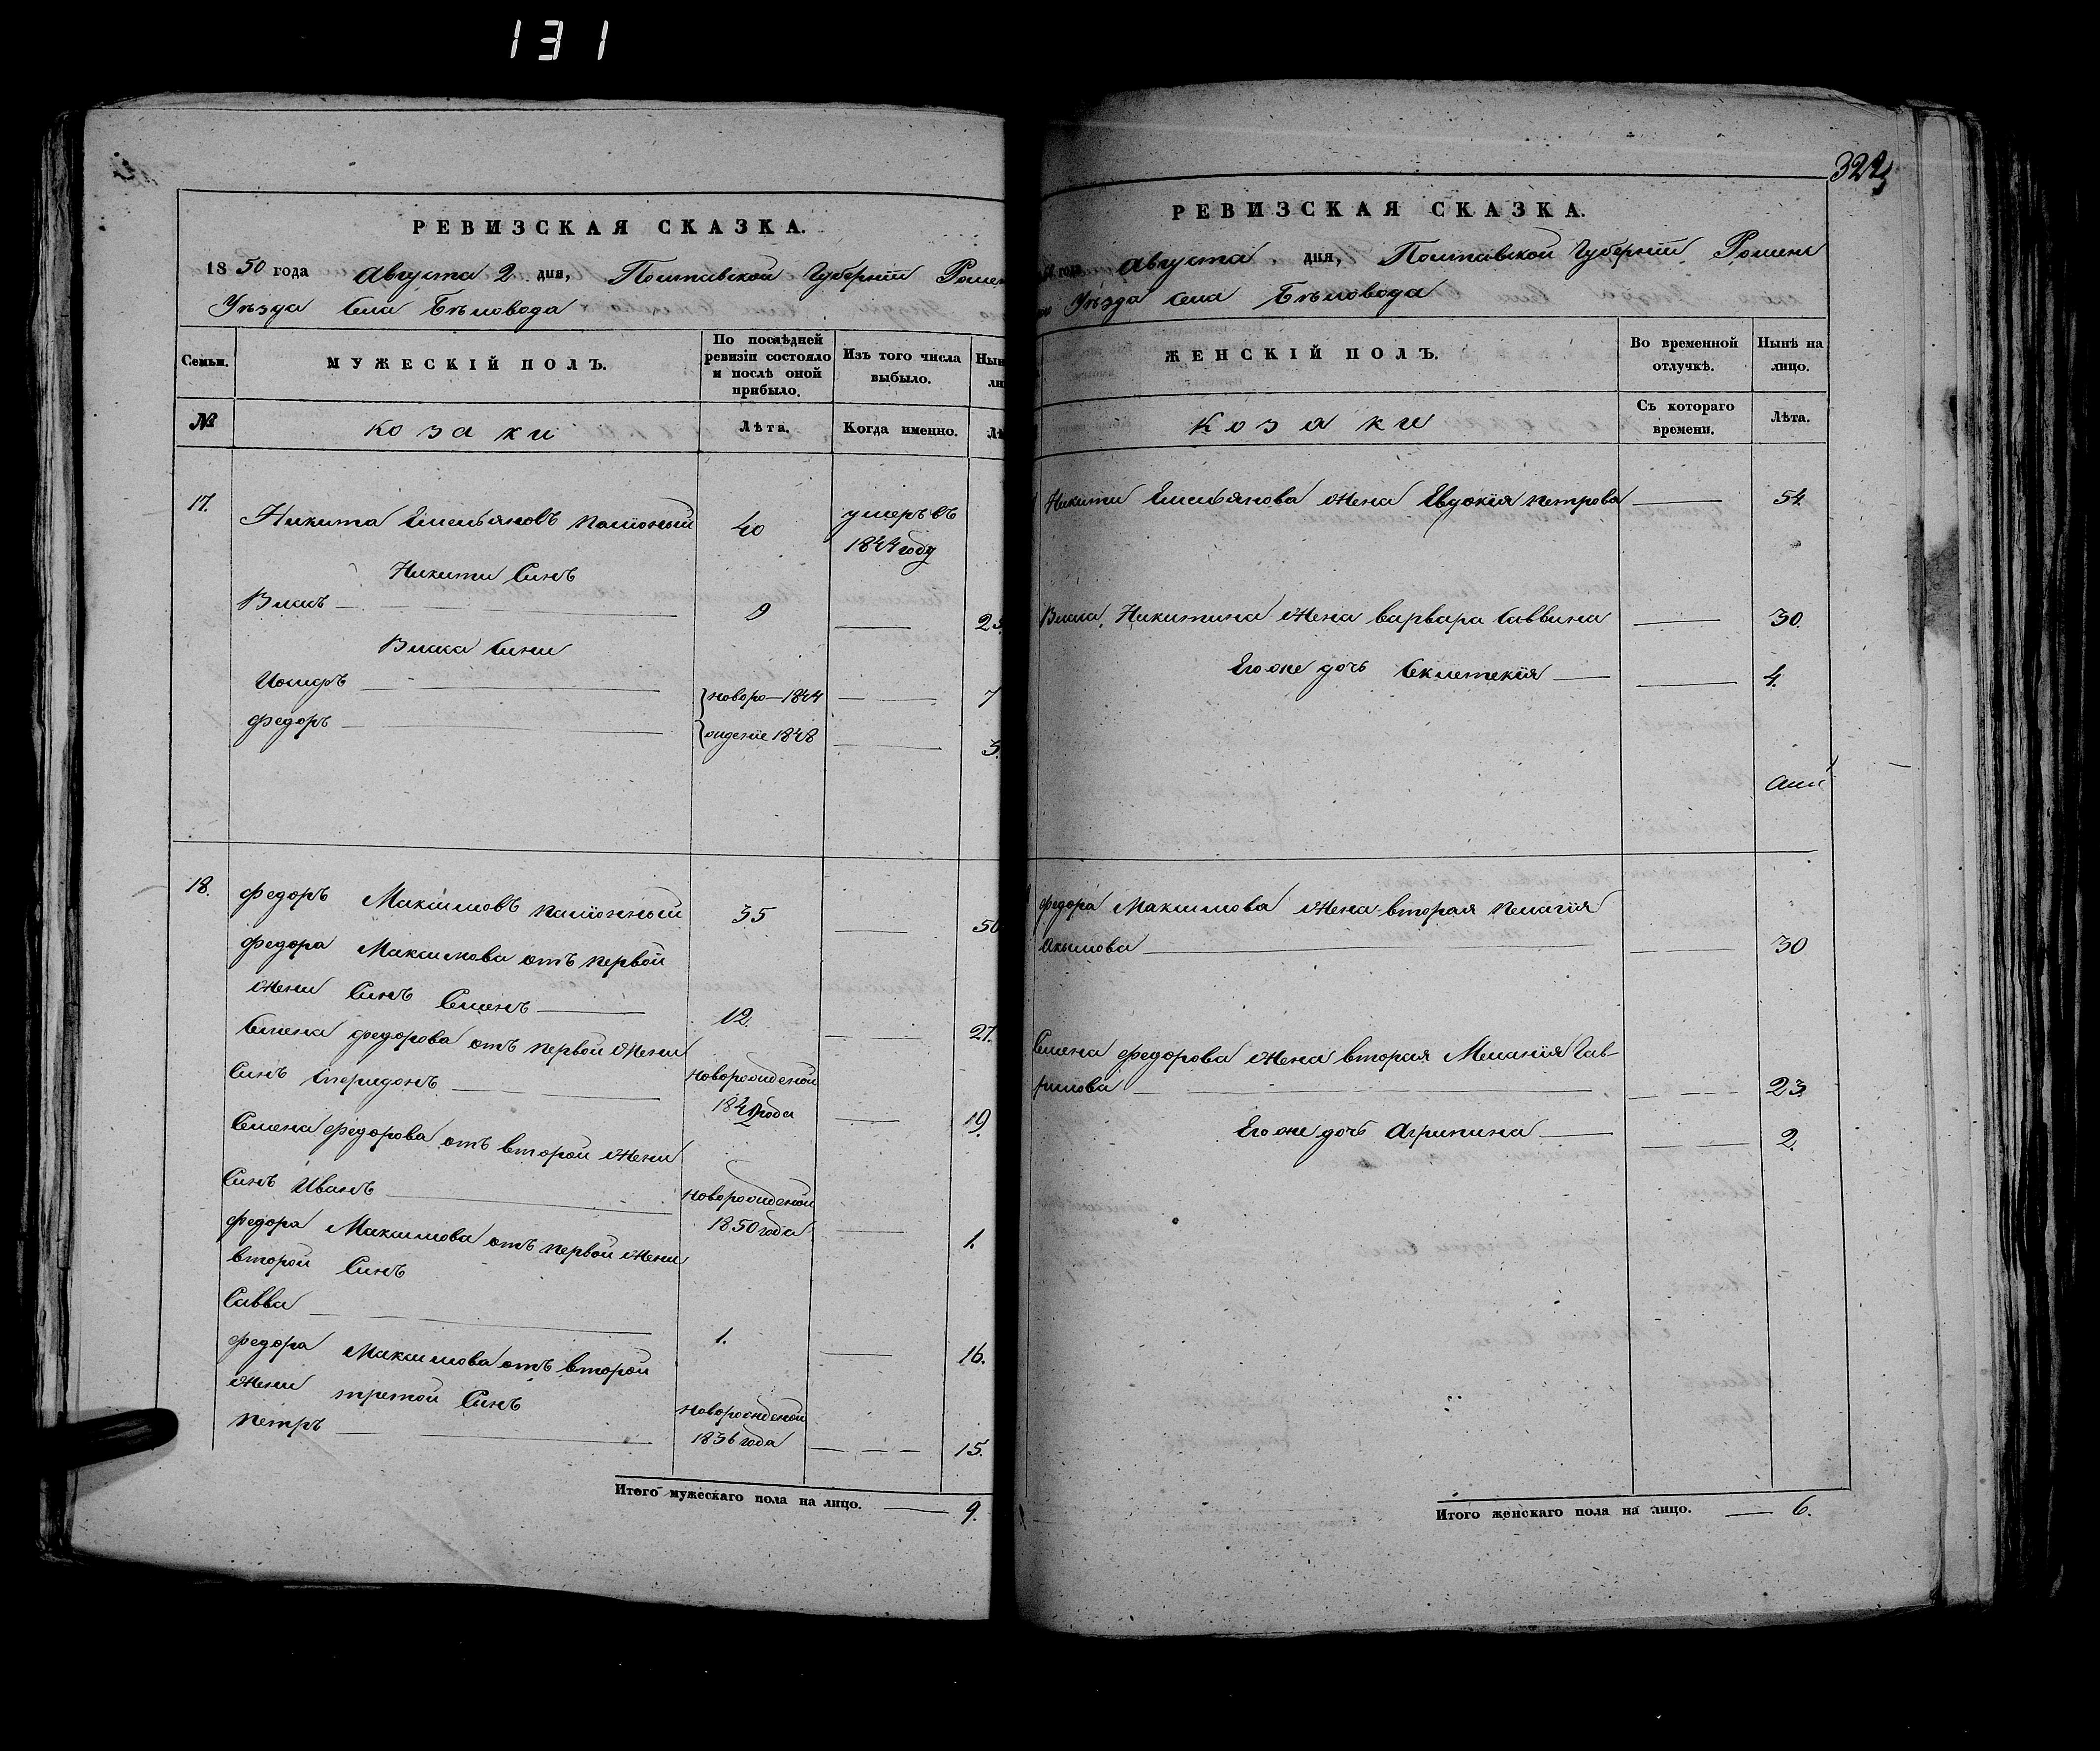 131
РЕВИЗСКАЯ СКАЗКА.
1850 года Августа 2 дня, Полтавской Губернiи Ромен
Уѣзда Села Бѣловода
Семьи.
МУЖЕСКІЙ ПОЛЪ.
По послѣдней ревизіи состояло и послѣ оной прибыло.
Изъ того числа выбыло.
№
козаки
Лѣта.
Когда именно.
17.
Никита Емельяновъ
40
умеръ въ
1844 году
Никити Синъ
Власъ
9
Власа Сини
Иосифъ
новоро- 1844
7
Федоръ
ждение 1848
3.
18.
Федоръ Максимовъ
35
50
Федора Максимова отъ первой
жени Синъ Семенъ
12.
27.
Семена Федорова отъ первой жени
Синъ Спиридонъ
новорожденой
года
Семена Федорова отъ второй жени
Синъ Иванъ
новорожденой
1850 года
1.
Федора Максимова отъ первой жени
второй Синъ
Савва
1.
16.
Федора Максимова отъ второй
жени третой Синъ
Петръ
новорожденой
1836 года
15.
Итого мужескаго пола на лицо.
9.
РЕВИЗСКАЯ СКАЗКА.
года Августа дня, Полтавской Губернiи, Ромен
Уѣзда Села Бѣловода
ЖЕНСКІЙ ПОЛЪ.
Во временной отлучкѣ.
Нынѣ на лицо.
Козаки
Съ котораго времени.
Лѣта.
Никити Емельянова жена Евдокiя Петрова
54.
Власа Никитина жена Варвара Саввина
30.
Его же дочь
4.
Федора Максимова жена вторая Пелагiя
Акимова
30
Семена Федорова жена вторая Меланiя Гав-
рилова
23
Его же дочь Агрипина
2.
Итого женскаго пола на лицо.
6.